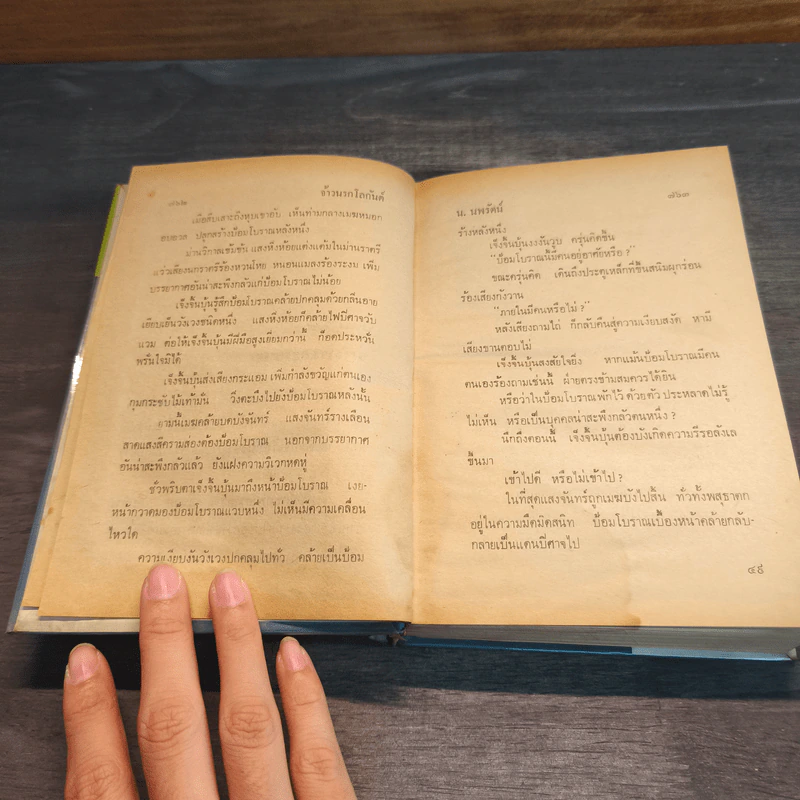 ๗๖๒
จ้าวนรกโลกันต์
เมื่อสืบเสาะถึงหุบเขาอับ เห็นท่ามกลางเมฆหมอก
อบอวล ปลุกสร้างป้อมโบราณหลังหนึ่ง
ม่านวิกาลเข้มข้น แสงหิ่งห้อยแต่งแต้มในม่านราตรี
แว่วเสียงนกราตรีร้องหวนโหย หนอนแมลงร้องระงม เพิ่ม
บรรยากาศอันน่าสะพึงกลัวแก่ป้อมโบราณไม่น้อย
เจ็งจิ้นบุ้นรู้สึกป้อมโบราณคล้ายปกคลุมด้วยกลิ่นอาย
เยียบเย็นวังเวงชนิดหนึ่ง แสงหิ่งห้อยก็คล้ายไฟปีศาจวับ
แวม ต่อให้เจ็งจิ้นบุ้นมีฝีมือสูงเยี่ยมกว่านี้ ก็อดประหวั่น
พรั่นใจมิได้
เจ็งจิ้นบุ้นส่งเสียงกระแอม เพิ่มกำลังขวัญแก่ตนเอง
กุมกระชับไม้เท้ามั่น วิ่งตะบึงไปยังป้อมโบราณหลังนั้น
ยามนี้เมฆคล้ายบดบังจันทร์ แสงจันทร์รางเลือน
สาดแสงสีครามส่องต้องป้อมโบราณ นอกจากบรรยากาศ
อันน่าสะพึงกลัวแล้ว ยังแฝงความวิเวกหดหู่
ชั่วพริบตาเจ็งจิ้นบุ้นมาถึงหน้าป้อมโบราณ เงย-
หน้ากวาดมองป้อมโบราณแวบหนึ่ง ไม่เห็นมีความเคลื่อน
ไหวใด
ความเงียบงันวังเวงปกคลุมไปทั่ว คล้ายเป็นป้อม
น. นพรัตน์
๗๖๓
ร้างหลังหนึ่ง
เจ็งจิ้นบุ้นงงงันวูบ ครุ่นคิดขึ้น
"ป้อมโบราณนี้มีคนอยู่อาศัยหรือ ?"
ขณะครุ่นคิด เดินถึงประตูเหล็กที่ขึ้นสนิมผุกร่อน
ร้องเสียงกังวาน
"ภายในมีคนหรือไม่ ?"
หลังเสียงถามไถ่ ก็กลับคืนสู่ความเงียบสงัด หามี
เสียงขานตอบไม่
เจ็งจิ้นบุ้นสงสัยใจยิ่ง หากแม้นป้อมโบราณมีคน
ตนเองร้องถามเช่นนี้ ฝ่ายตรงข้ามสมควรได้ยิน
หรือว่าในป้อมโบราณพักไว้ด้วยตัวประหลาดไม่รู้
ไม่เห็น หรือเป็นบุคคลน่าสะพึงกลัวคนหนึ่ง ?
นึกถึงตอนนี้ เจ็งจิ้นบุ้นต้องบังเกิดความรีรอลังเล
ขึ้นมา
เข้าไปดี หรือไม่เข้าไป ?
ในที่สุดแสงจันทร์ถูกเมฆบังไปสิ้น ทั่วทั้งพสุธาตก
อยู่ในความมืดมิดสนิท ป้อมโบราณเบื้องหน้าคล้ายกลับ-
กลายเป็นแดนปีศาจไป
๔๙